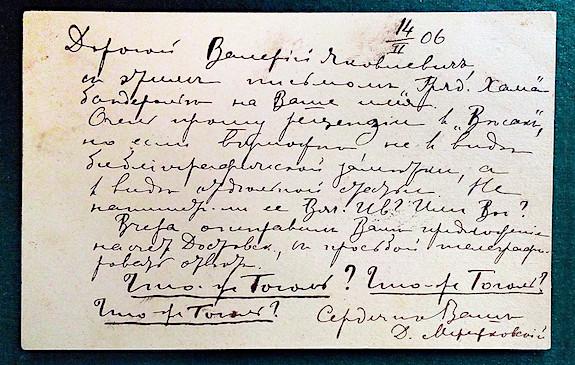 14/II 06
Дорогой Валерій Яковлевичъ,
съ этимъ письмомъ Гряд. Хама
бандеролью на Ваше имя.
Очень прошу рецензіи въ „Вѣсахъ“,
но если возможно не въ видѣ
библіографической замѣтки, а
въ видѣ отдѣльной статьи. Не
напишетъ ли ее Вяч. Ив.? Или Вы?
Вчера отправилъ Вамъ предложеніе
насчет Достоевск, съ просьбой телеграфи-
ровать отвѣтъ.
Что-же Гоголь? Что-же Гоголь?
Что-же Гоголь?
Сердечно Вашъ
Д. Мережковскій